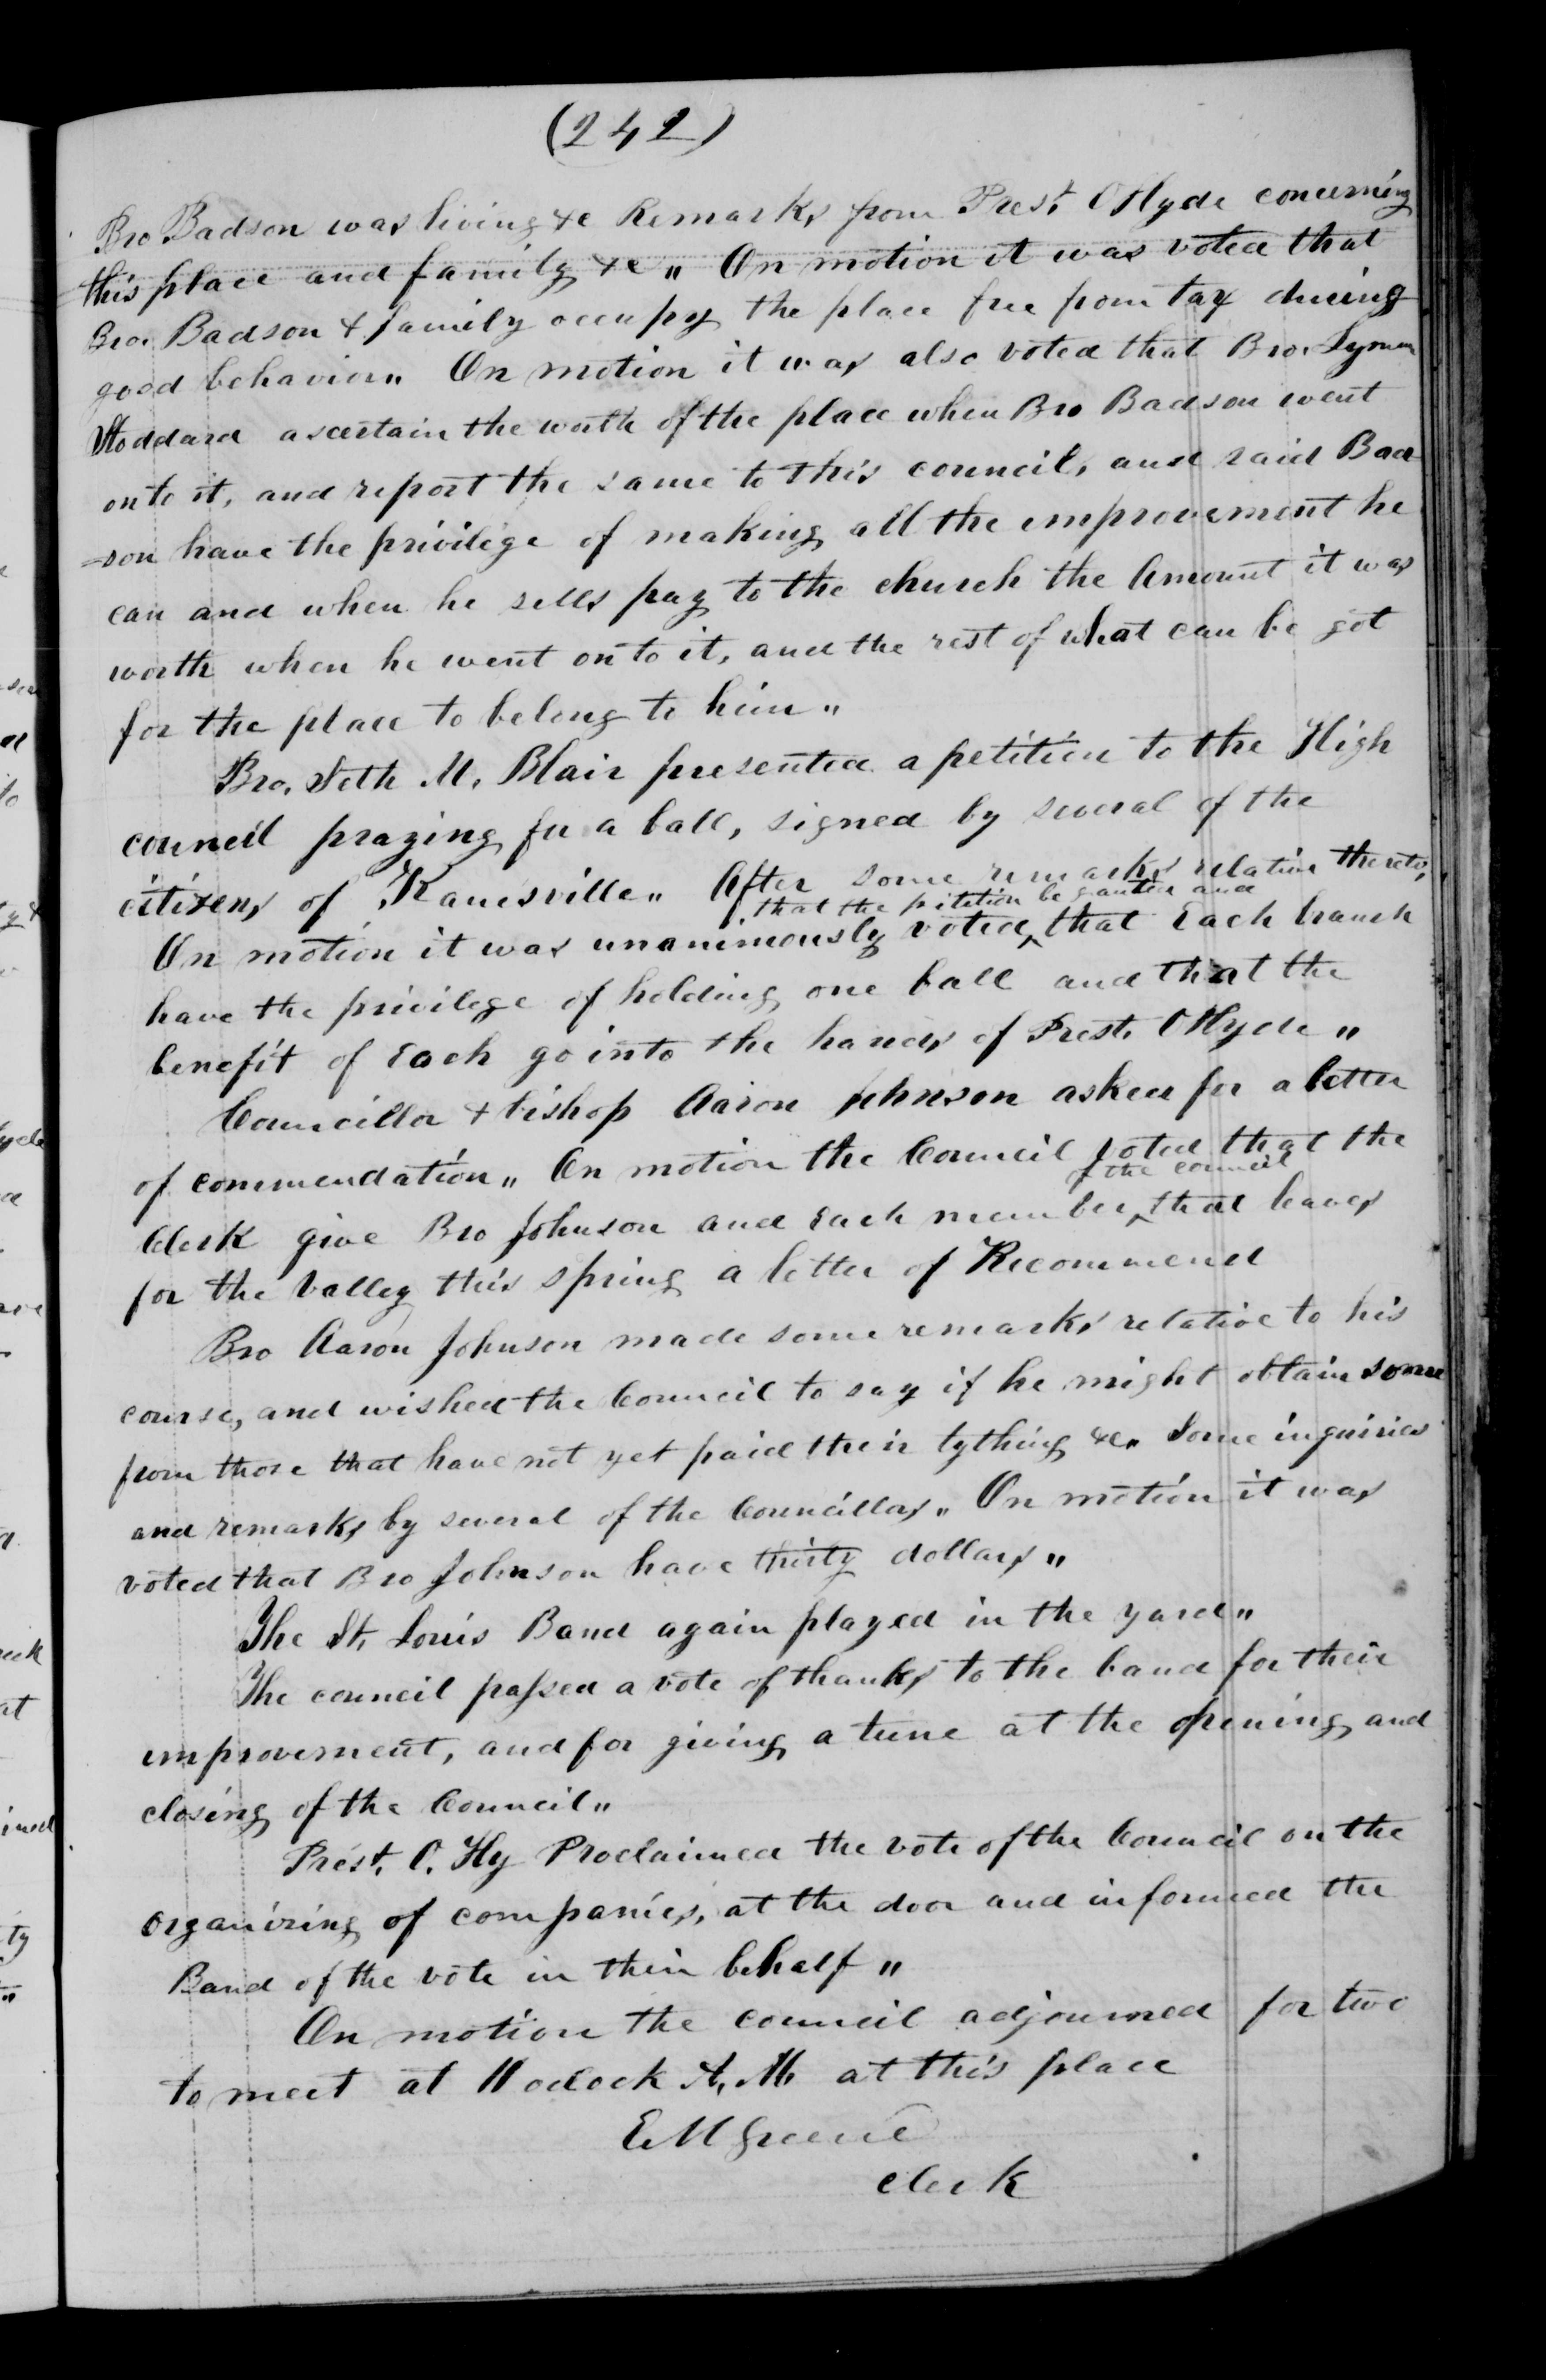 (242)
Bro Badson was living &c Remarks from Prest O Hyde concerning
this place and family &c " On motion it was voted that
Bro. Badson & family occupy the place free from tax during
good behavior " On motion it was also voted that Bro. Lyman
Stoddard ascertain the worth of the place when Bro Badson went
onto it, and report the same to this council, and said Bad
-son have the privilege of making all the improvement he
can and when he sells pay to the church the Amount it was
worth when he went onto it, and the rest of what can be got
for the place to belong to him "
Bro. Seth M. Blair presented a petition to the High
council praying for a ball, signed by several of the
citizens of Kanesville " After some remarks relative thereto,
that the petition be granted and
On motion it was unanimously voted ^ that Each branch
have the privilege of holding one ball and that the
benefit of Each go into the hands of Prest. O Hyde "
Councillor & bishop Aaron Johnson asked for a letter
of commendation " On motion the Council voted that the
of the council
Clerk give Bro Johnson and Each member ^ that leaves
for the Valley this spring a letter of Recommend
Bro Aaron Johnson made some remarks relative to his
course, and wished the Council to say if he might obtain some
from those that have not yet paid their tything &c " Some inquiries
and remarks by several of the Councillors " On motion it was
voted that Bro Johnson have thirty dollars "
The St, Louis Band again played in the yard "
The council passed a vote of thanks to the band for their
improvement, and for giving a tune at the opening and
closing of the Council "
Prest. O. Hy Proclaimed the vote of the Council on the
organizing of companies, at the door and informed the
Band of the vote in their behalf "
On motion the council adjourned for two
to meet at 11 oclock A. M. at this place
E M Greene
Clerk